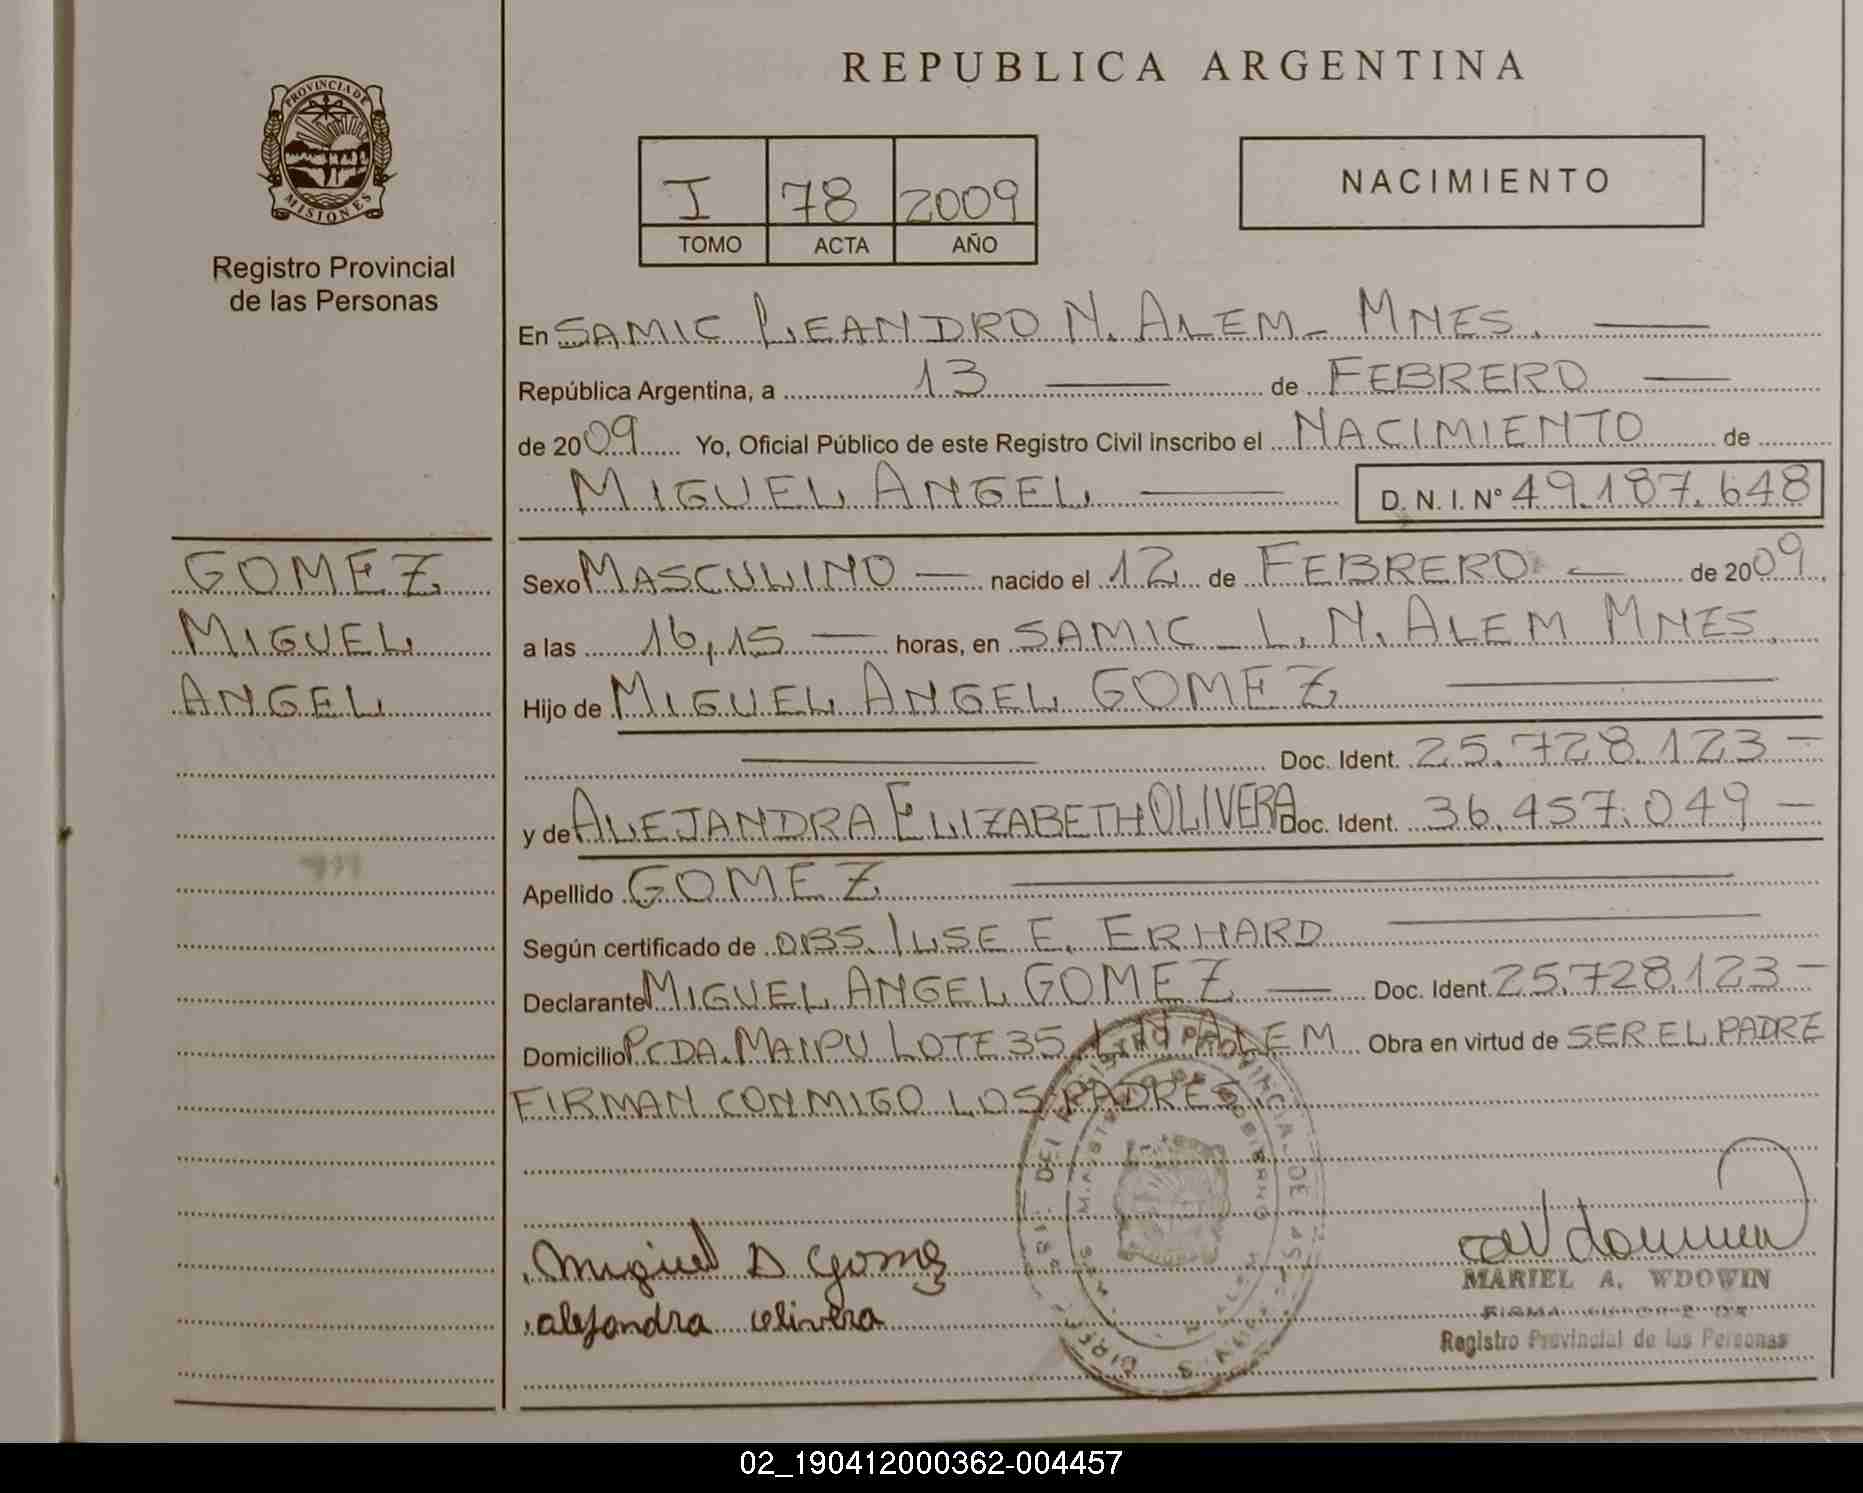 REPUBLICA ARGENTINA
PROVINCIA DE
MISIONES
Registro Provincial
de las Personas
I 78 2009
TOMO ACTA AÑO
NACIMIENTO
En SAMIC LEANDRO N. ALEM - MNES.
República Argentina, a 13 de FEBRERO
de 2009 Yo, Oficial Público de este Registro Civil inscribo el NACIMIENTO de
MIGUEL ANGEL D. N. I. N° 49.187.648
GOMEZ
MIGUEL
ANGEL
Sexo MASCULINO nacido el 12 de FEBRERO de 2009
a las 16,15 horas, en SAMIC L. N. ALEM MNES.
Hijo de MIGUEL ANGEL GOMEZ
Doc. Ident. 25.728.123
y de ALEJANDRA ELIZABETH OLIVERA Doc. Ident. 36.457.049
Apellido GOMEZ
Según certificado de OBS. ILSE E. ERHARD
Declarante MIGUEL ANGEL GOMEZ Doc. Ident. 25.728.123
Domicilio PCDA. MAIPU LOTE 35 L. N. ALEM Obra en virtud de SER EL PADRE
FIRMAN CONMIGO LOS PADRES.
Miguel A Gomez
alejandra olivera
MARIEL A. WDOWIN
Registro Provincial de las Personas
02_190412000362-004457